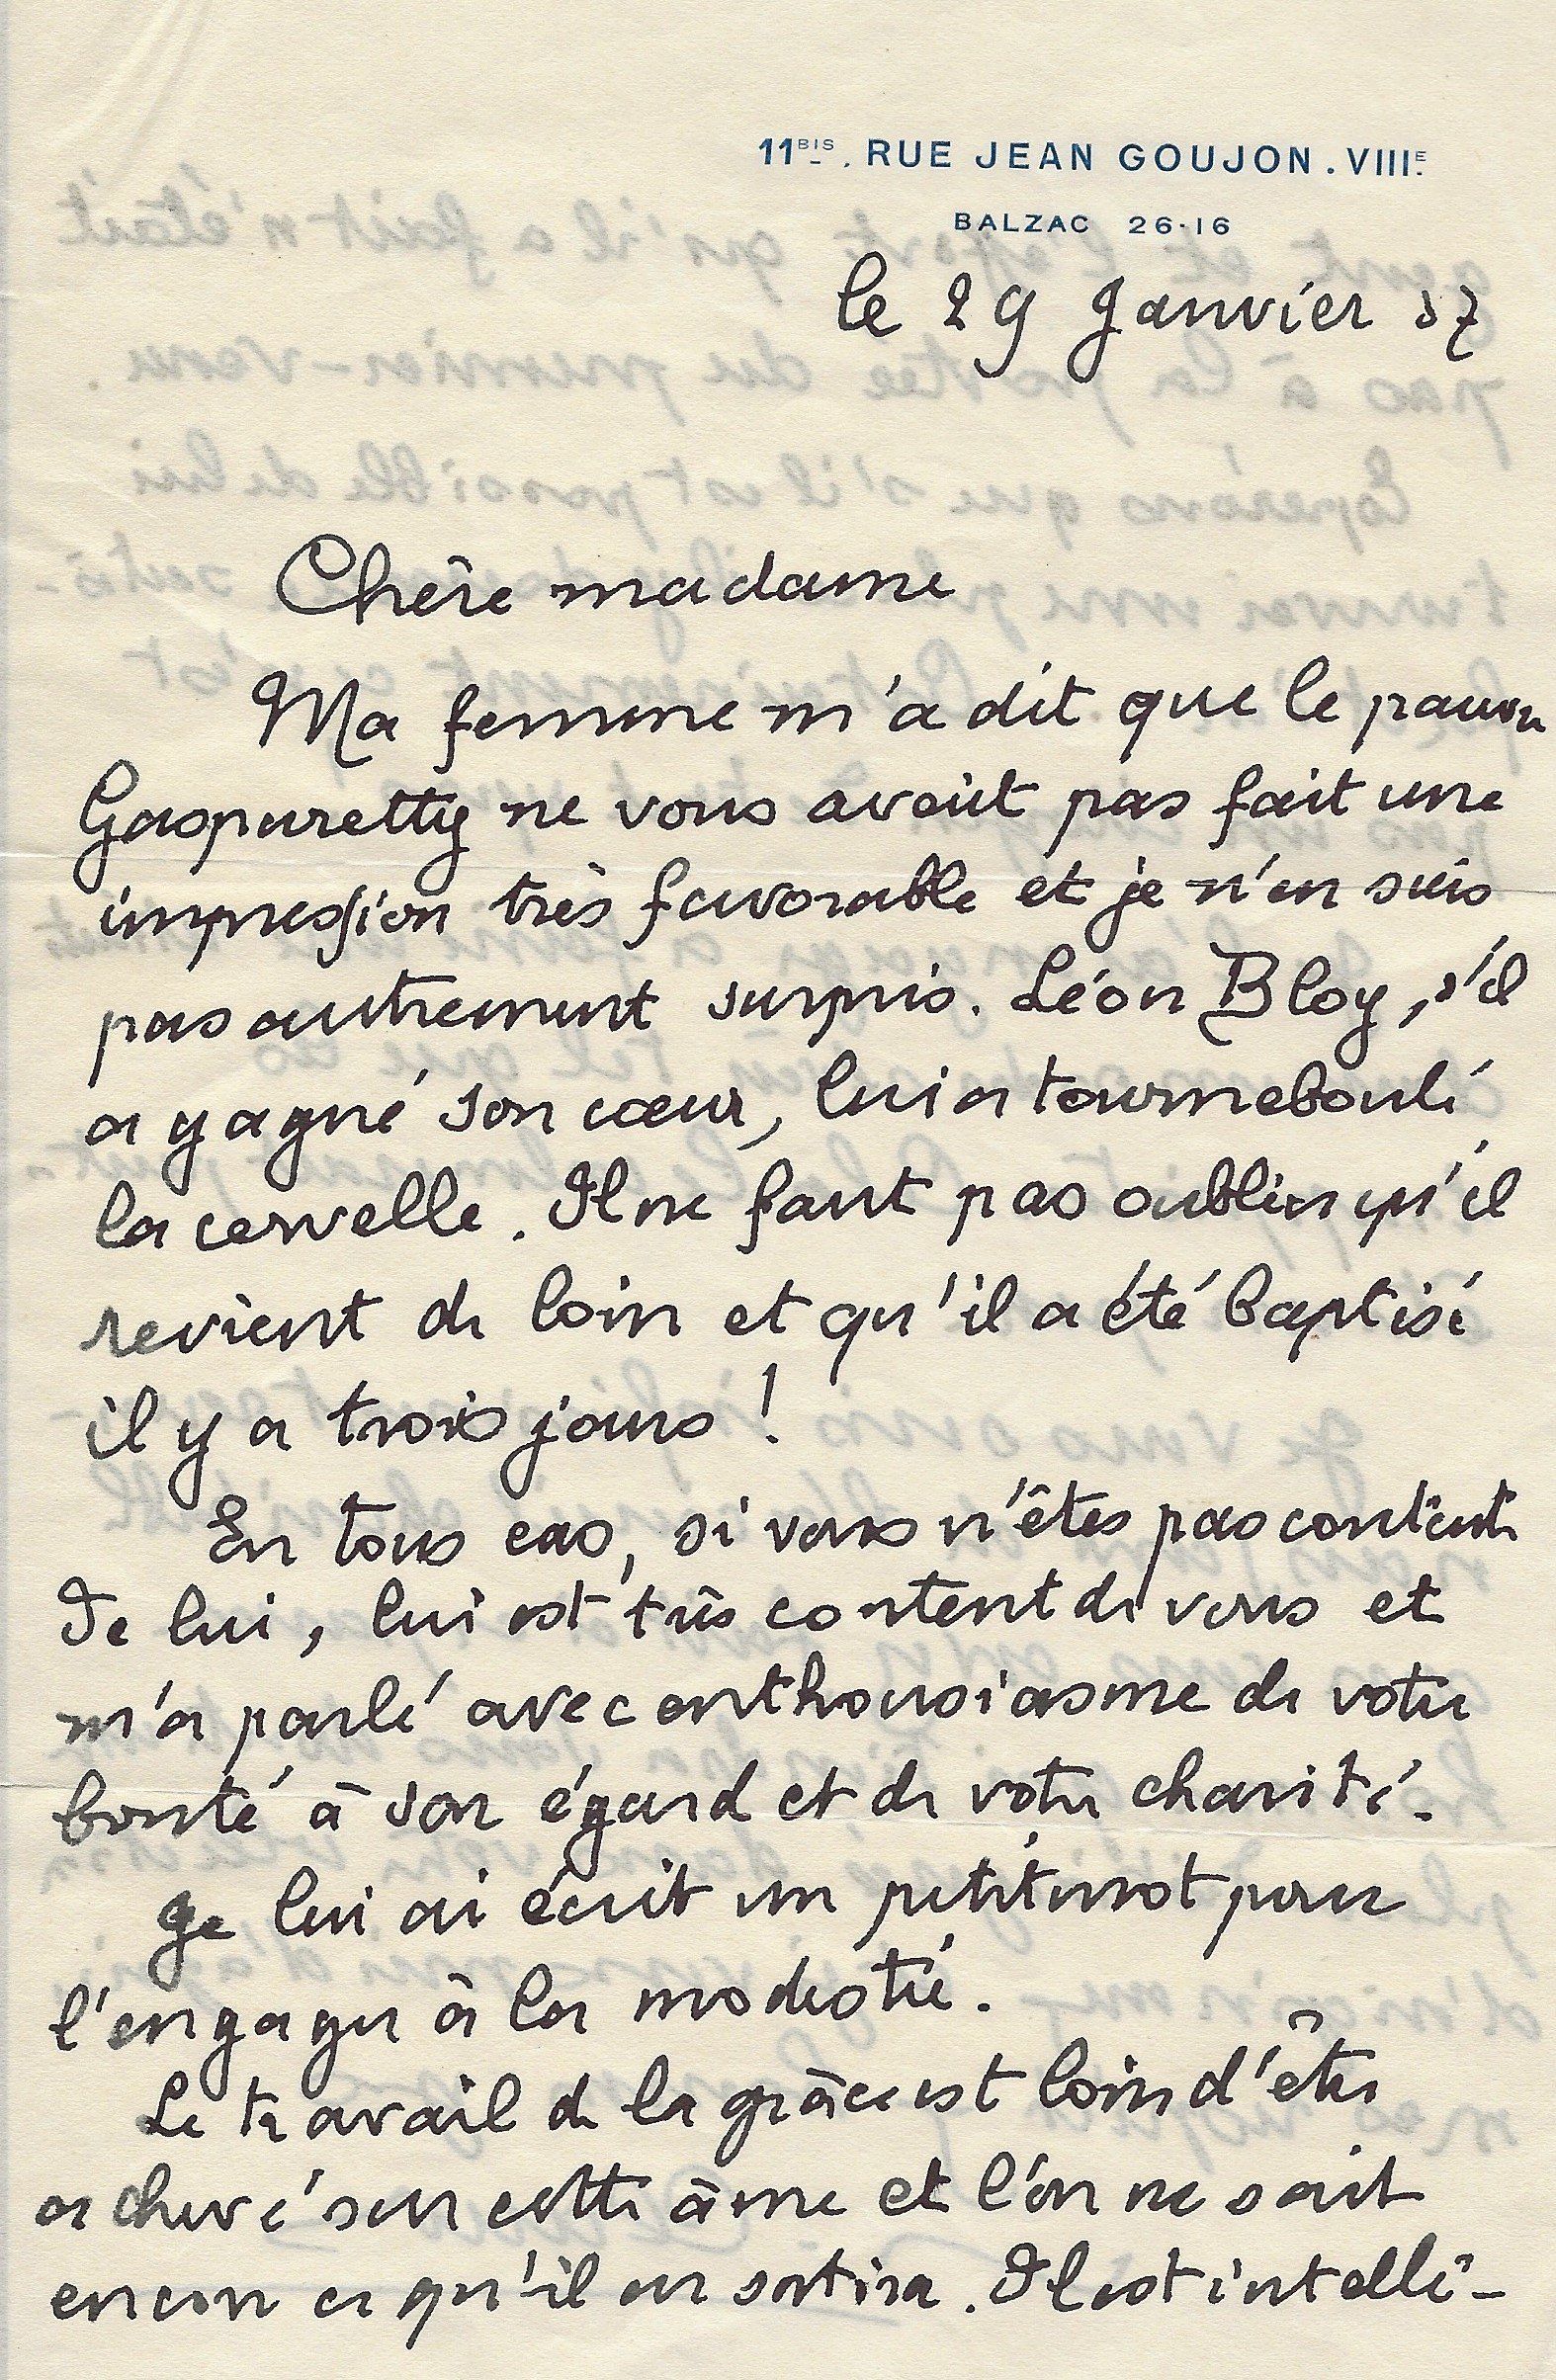 11BIS. RUE JEAN GOUJON. VIIIE.
BALZAC 26·16
le 29 Janvier 37
Chère madame
Ma femme m'a dit que le pauvre
Gaspuretty ne vous avait pas fait une
impression très favorable et je n'en suis
pas autrement surpris. Léon Bloy, s'il
a gagné son cœur, lui a tourneboulé
la cervelle. Il ne faut pas oublier qu'il
revient de loin et qu'il a été baptisé
il y a trois jours !
En tous cas, si vous n'êtes pas contente
de lui, lui est très content de vous et
m'a parlé avec enthousiasme de votre
bonté à son égard et de votre charité.
Je lui ai écrit un petit mot pour
l'engager à la modestie.
Le travail de la grâce est loin d'être
achevé sur cette âme et l'on ne sait
encore ce qu'il en sortira. Il est intelli-